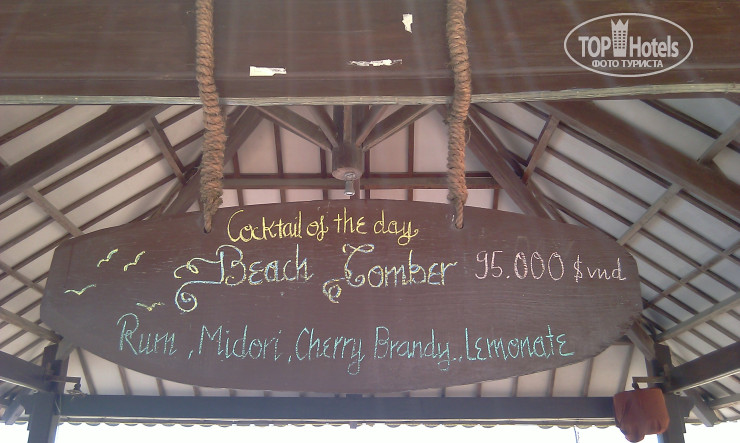 TOP Hotels
ФОТО ТУРИСТА
Cocktail of the day
Beach Comber 95.000 $ vnd
Rum, Midori, Cherry Brandy, Lemonate